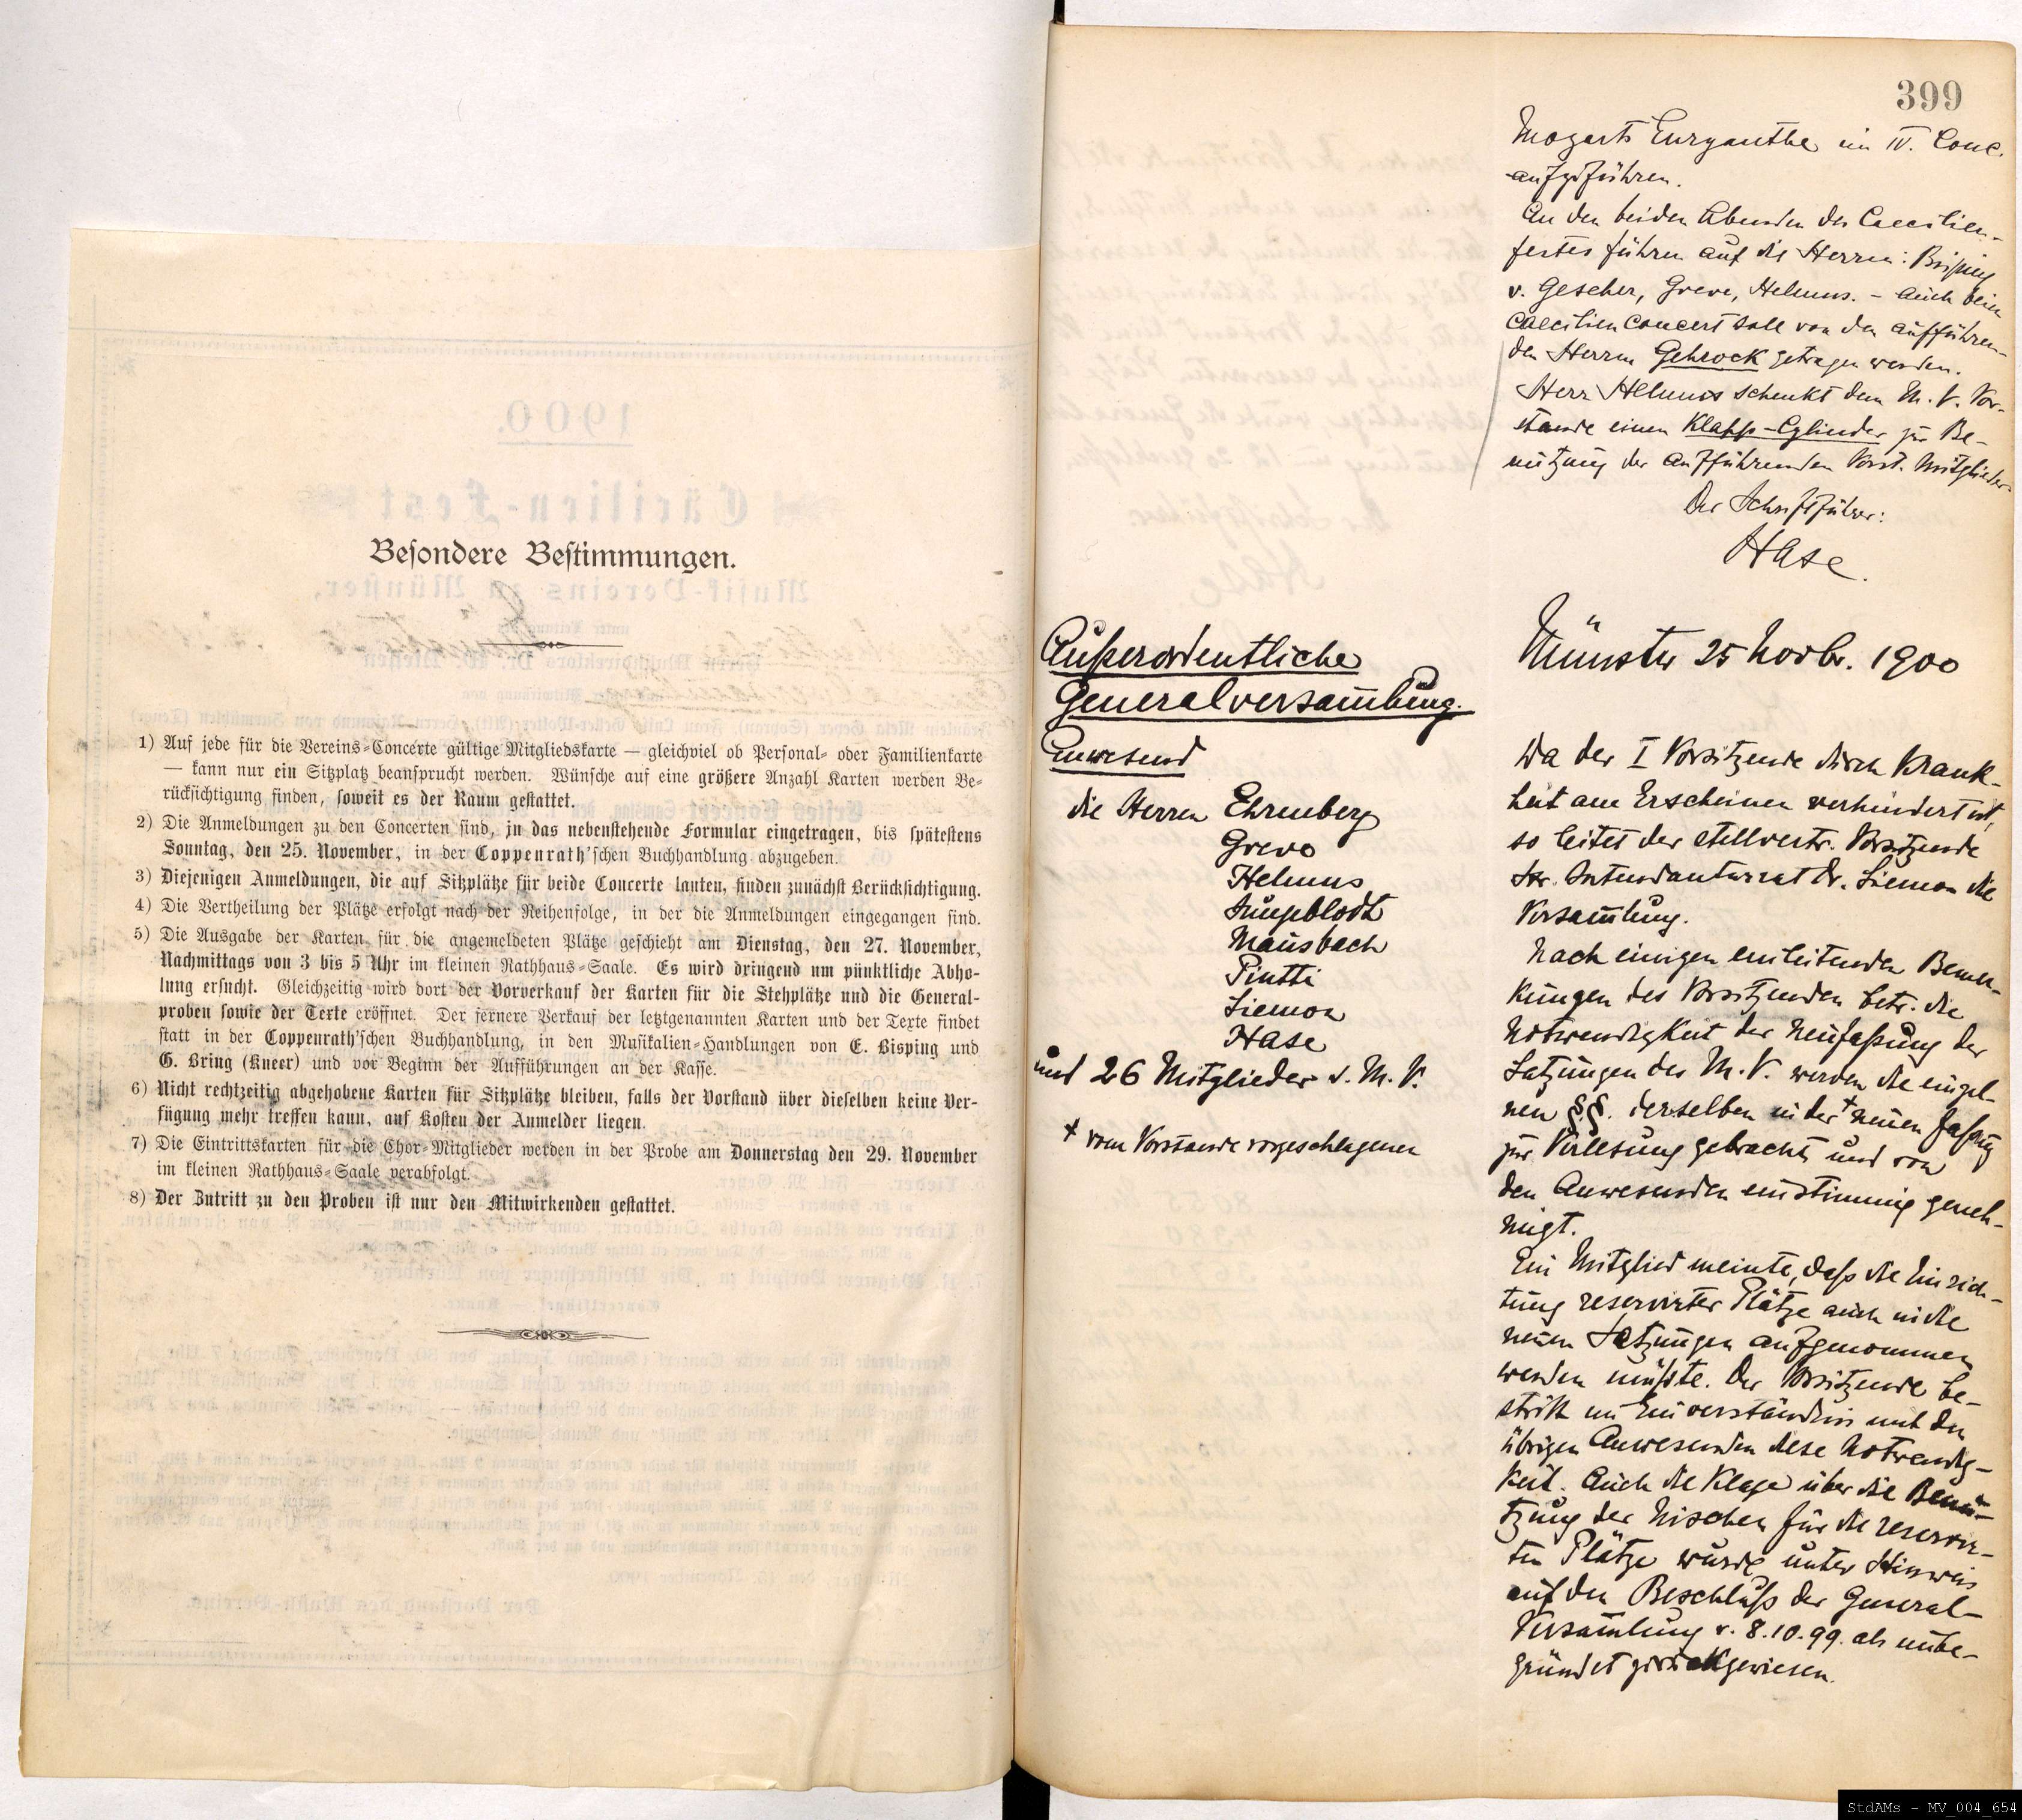 Besondere Bestimmungen.
1) Auf jede für die Vereins-Concerte gültige Mitgliedskarte — gleichviel ob Personal- oder Familienkarte
— kann nur ein Sitzplatz beansprucht werden. Wünsche auf eine größere Anzahl Karten werden Be-
rücksichtigung finden, soweit es der Raum gestattet.
2) Die Anmeldungen zu den Concerten sind, in das nebenstehende Formular eingetragen, bis spätestens
Sonntag, den 25. November, in der Coppenrath'schen Buchhandlung abzugeben.
3) Diejenigen Anmeldungen, die auf Sitzplätze für beide Concerte lauten, finden zunächst Berücksichtigung.
4) Die Vertheilung der Plätze erfolgt nach der Reihenfolge, in der die Anmeldungen eingegangen sind.
5) Die Ausgabe der Karten für die angemeldeten Plätze geschieht am Dienstag, den 27. November,
Nachmittags von 3 bis 5 Uhr im kleinen Rathhaus-Saale. Es wird dringend um pünktliche Abho-
lung ersucht. Gleichzeitig wird dort der Vorverkauf der Karten für die Stehplätze und die General-
proben sowie der Texte eröffnet. Der fernere Verkauf der letztgenannten Karten und der Texte findet
statt in der Coppenrath'schen Buchhandlung, in den Musikalien-Handlungen von E. Bisping und
G. Bring (Kneer) und vor Beginn der Aufführungen an der Kasse.
6) Nicht rechtzeitig abgehobene Karten für Sitzplätze bleiben, falls der Vorstand über dieselben keine Ver-
fügung mehr treffen kann, auf Kosten der Anmelder liegen.
7) Die Eintrittskarten für die Chor-Mitglieder werden in der Probe am Donnerstag den 29. November
im kleinen Rathhaus-Saale verabfolgt.
8) Der Zutritt zu den Proben ist nur den Mitwirkenden gestattet.
399
Mozarts Euryanthe im IV. Conc.
aufzuführen.
An den beiden Abenden des Caecilien-
festes führen auf die Herren: Bisping
v. Gescher, Greve, Helmus. – Auch beim
Caecilien Concert soll von den aufführen-
den Herren Gehrock getragen werden.
Herr Helmus schenkt dem M. V. Vor-
stande einen Klapp-Cylinder zur Be-
nützung der aufführenden Vorst. Mitglieder.
Der Schriftführer:
Hase.
Außerordentliche
Generalversammlung.
Anwesend
die Herren Ehrenberg
Greve
Helmus
Jungeblodt
Mausbach
Piutti
Siemon
Hase
und 26 Mitglieder d. M. V.
+ vom Vorstande vorgeschlagenen
Münster 25 Novbr. 1900
Da der I Vorsitzende durch Krank-
heit am Erscheinen verhindert ist,
so leitet der stellvertr. Vorsitzende
Hr. Intendanturrat Dr. Siemon die
Versammlung.
Nach einigen einleitenden Bemer-
kungen des Vorsitzenden betr. die
Notwendigkeit der Neufaßung der
Satzungen des M. V. werden die einzel-
nen §§. derselben in der + neuen Faßung
zur Verlesung gebracht und von
den Anwesenden einstimmig geneh-
migt.
Ein Mitglied meinte, daß die Einrich-
tung reservirter Plätze auch in die
neuen Satzungen aufgenommen
werden müßte. Der Vorsitzende be-
stritt im Einverständnis mit den
übrigen Anwesenden diese Notwendig-
keit. Auch die Klage über die Benü-
tzung der Nischen für die reservir-
ten Plätze wurde unter Hinweis
auf den Beschluß der General-
Versammlung v. 8.10.99. als unbe-
gründet zurückgewiesen.
StdAMs - MV_004_654